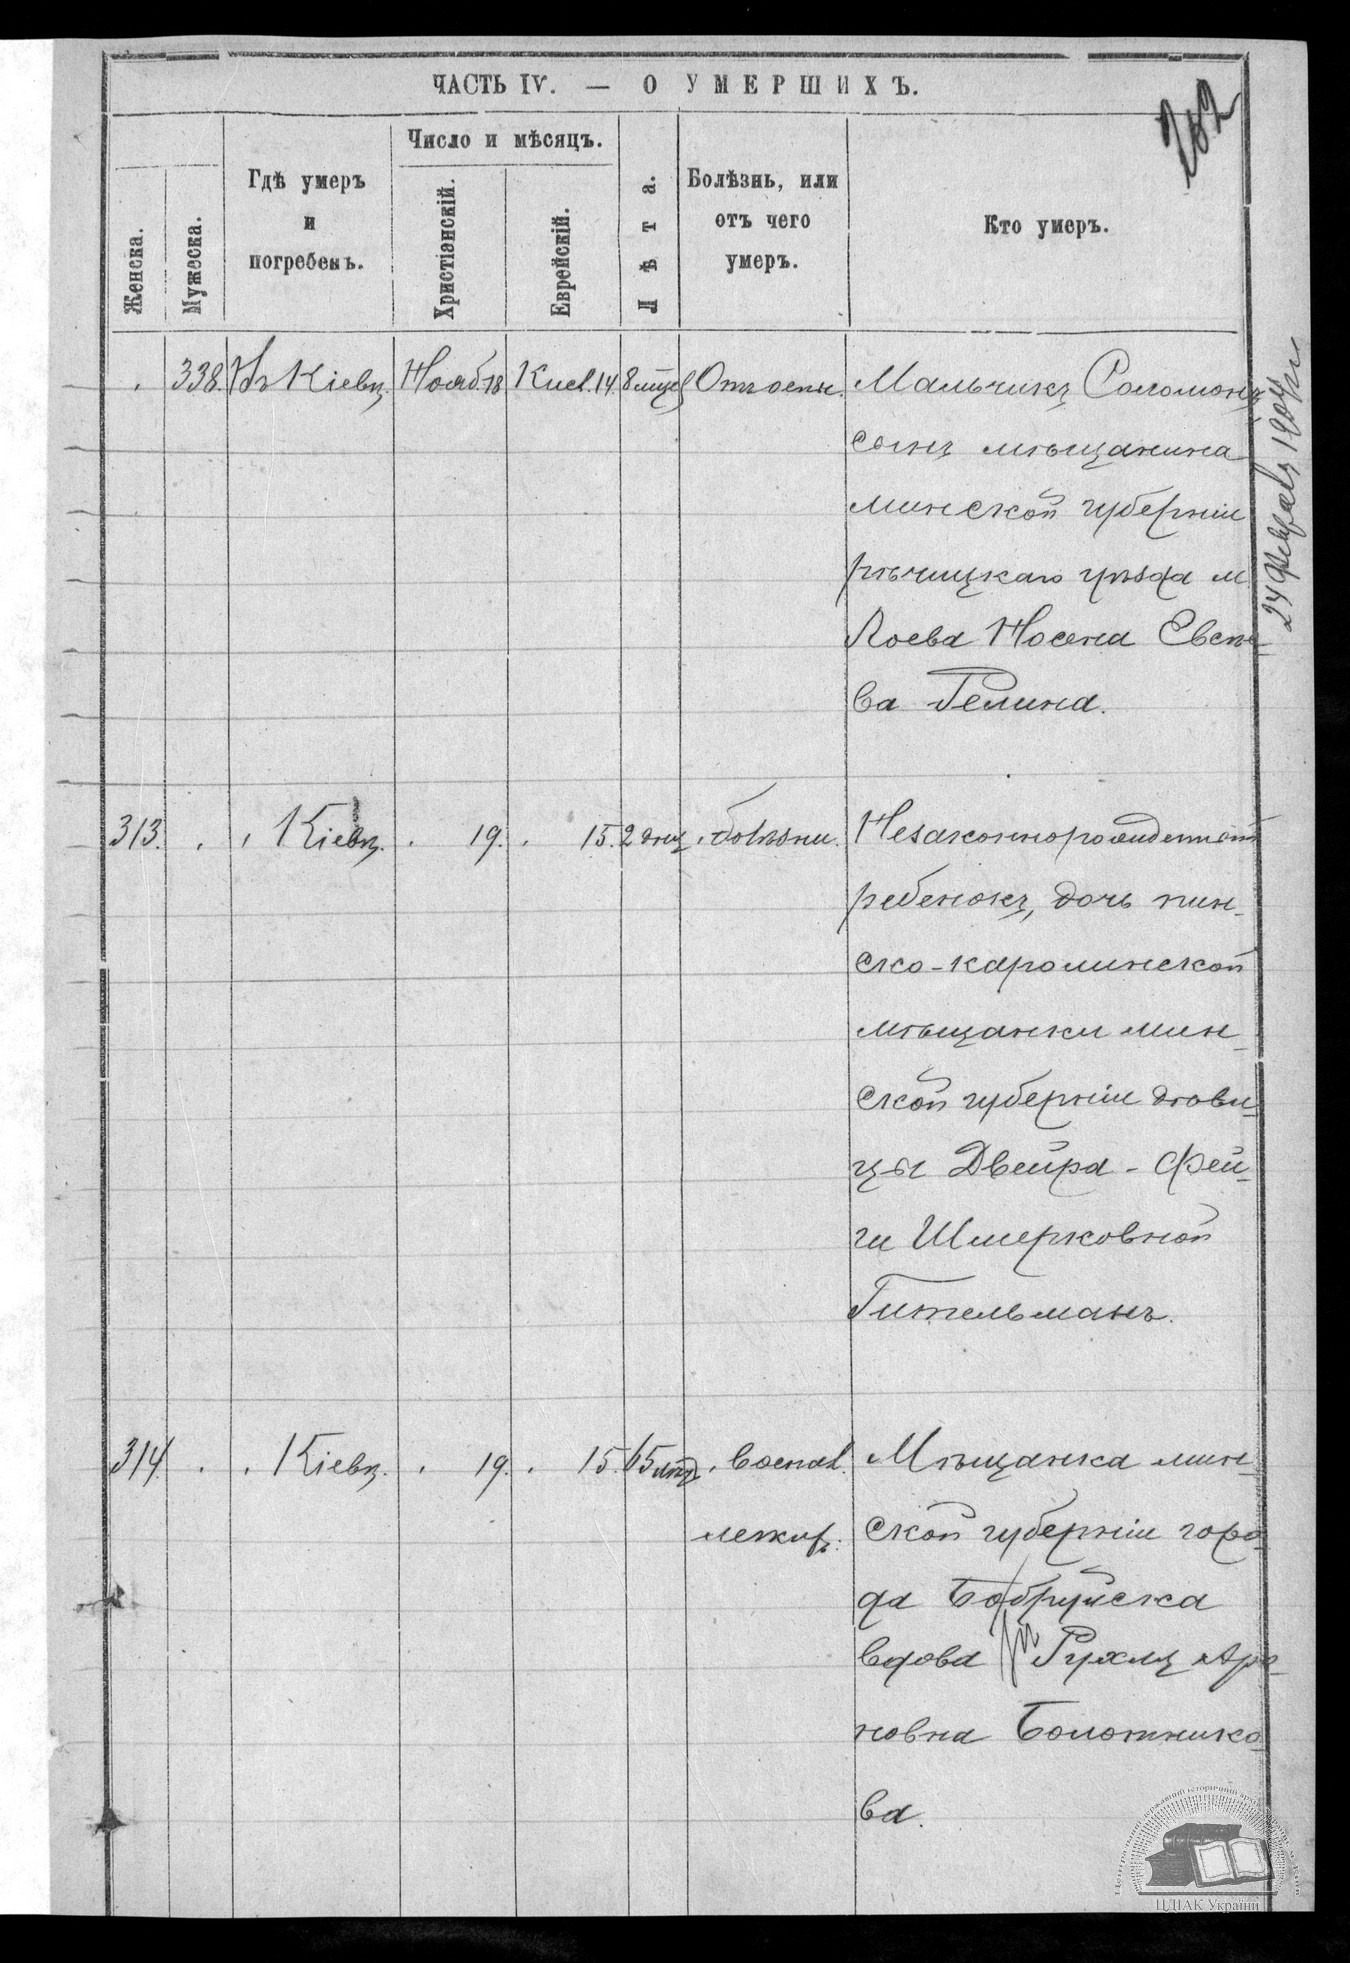 ЧАСТЬ IV. — О УМЕРШИХЪ.
202
Женска.
Мужеска.
Гдѣ умеръ
и
погребенъ.
Число и мѣсяцъ.
Христіанскій.
Еврейскій.
Лѣта.
Болѣзнь, или
отъ чего
умеръ.
Кто умеръ.
338. Въ Кіевѣ. Нояб. 18 Кисл. 14. 8 мѣсяц. Отъ оспы. Мальчикъ Соломонъ
сынъ мѣщанина
минской губерніи
рѣчицкаго уѣзда м.
Лоева Носона Евсѣе-
ва Гелина.
313. Кіевѣ. 19. 15. 2 дня болѣзни. Незаконнорожденный
ребенокъ, дочь пин-
ско-каролинской
мѣщанки мин-
ской губерніи дѣви-
цы Двейра-Фей-
ги Шмерковной
Гительманъ.
314. Кіевѣ. 19. 15. 65 лѣтъ воспал. Мѣщанка мин-
легкихъ. ской губерніи горо-
да Бобруйска
вдова Рухля Аро-
новна Болотнико-
ва.
ЦДІАК України